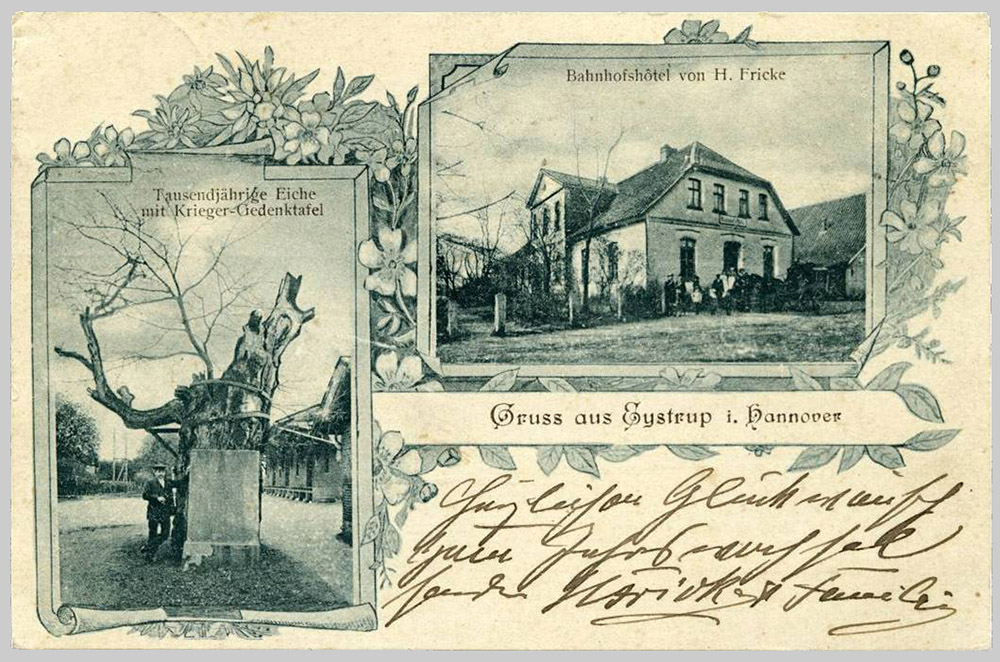 Tausendjährige Eiche
mit Krieger-Gedenktafel
Bahnhofshôtel von H. Fricke
Gruss aus Eystrup i. Hannover
Herzlichen Glückwunsch
zum Jahreswechsel
senden H Fricke & Familie